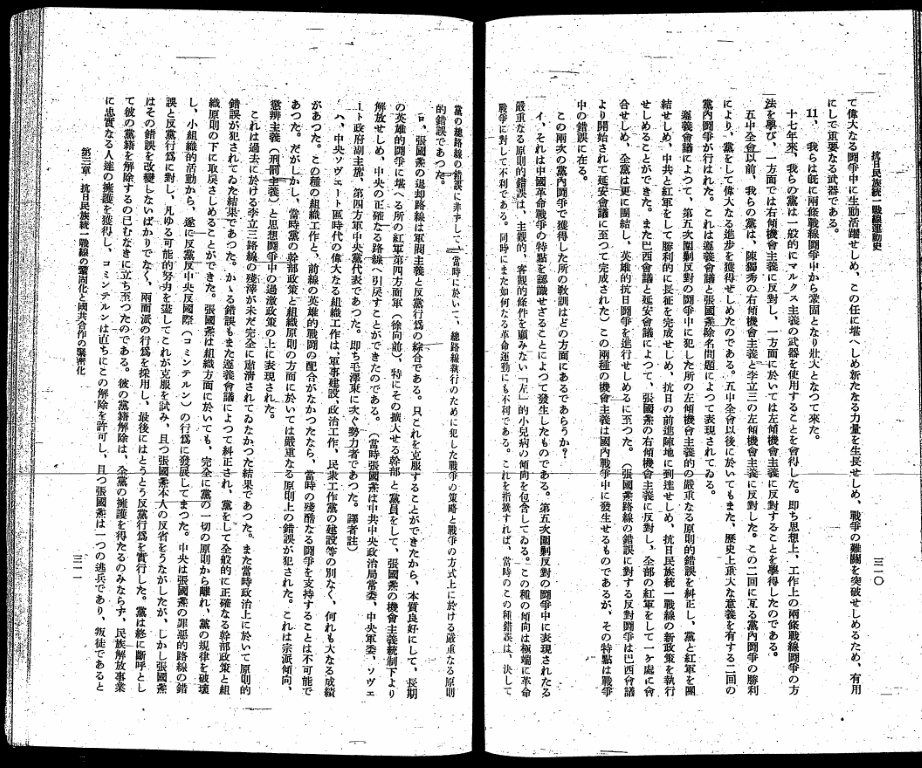 抗日民族統一戰線運動史
三一〇
て偉大なる鬪爭中に生動活躍せしめ、この任に堪へしめ新たなる力量を生長せしめ、戰爭の難關を突破せしめるため、有用
にして重要なる武器である。
11、我らは既に兩條戰線鬪爭中から鞏固となり壯大となつて來た。
十七年來、我らの黨は一般的にマルクス主義の武器を使用することを會得した。即ち思想上、工作上の兩條戰線鬪爭の方
法を學び、一方面では右傾機會主義に反對し、一方面に於いては左傾機會主義に反對することを學得したのである。
五中全會以前、我らの黨は、陳獨秀の右傾機會主義と李立三の左傾機會主義に反對した。この二回に亙る黨内鬪爭の勝利
により、黨をして偉大なる進步を獲得せしめたのである。五中全會以後に於いてもまた、歷史上重大な意義を有する二回の
黨内鬪爭が行はれた。これは遵義會議と張國燾除名問題によつて表現されてゐる。
遵義會議によつて、第五次圍剿反對の鬪爭中に犯した所の左傾機會主義的の嚴重なる原則的錯誤を糾正し、黨と紅軍を團
結せしめ、中共と紅軍をして勝利的に長征を完成せしめ、抗日の前進陣地に到達せしめ、抗日民族統一戰線の新政策を執行
せしめることができた。また巴西會議と延安會議によつて、張國燾の右傾機會主義に反對し、全部の紅軍をして一ヶ處に會
合せしめ、全黨は更に團結し、英雄的抗日鬪爭を進行せしめるに至つた。（張國燾路線の錯誤に對する反對鬪爭は巴西會議
より開始されて延安會議に至つて完成された）この兩種の機會主義は國内戰爭中に發生せるものであるが、その特點は戰爭
中の錯誤に在る。
この兩次の黨内鬪爭で獲得した所の敎訓はどの方面にあるであらうか？
イ、それは中國革命戰爭の特點を認識せざることによつて發生したものである。第五次圍剿反對の鬪爭中に表現されたる
嚴重なる原則的錯誤は、主義的、客觀的條件を顧みない「左」的小兒病の傾向を包含してゐる。この種の傾向は極端に革命
戰爭に對して不利である。同時にまた如何なる革命運動にも不利である。これを指摘すれば、當時のこの種錯誤は、決して
黨の總路線の錯誤に非ずして、當時に於いて、總路線執行のために犯した戰爭の策略と戰爭の方式上に於ける嚴重なる原則
的錯誤であつた。
ロ、張國燾の退却路線は軍閥主義と反黨行爲の綜合である。只これを克服することができたから、本質良好にして、長期
の英雄的鬪爭に堪へる所の紅軍第四方面軍（徐向前）、特にその擴大せる幹部と黨員をして、張國燾の機會主義統制下より
解放せしめ、中央の正確なる路線へ引戾すことができたのである。（當時張國燾は中共中央政治局常委、中央軍委、ソヴェ
ート政府副主席、第四方面軍中央黨代表であつた。即ち毛澤東に次ぐ勢力者であつた。譯者註）
ハ、中央ソヴェート區時代の偉大なる組織工作は、軍事建設、政治工作、民衆工作黨の建設等の別なく、何れも大なる成績
があつた。この種の組織工作と、前線の英雄的戰鬪の配合がなかつたなら、當時の殘酷なる鬪爭を支持することは不可能で
あつた。だがしかし、當時黨の幹部政策と組織原則の方面に於いては嚴重なる原則上の錯誤が犯された。これは宗派傾向、
懲辨主義（刑罰主義）と思想鬪爭中の過激政策の上に表現された。
これは過去に於ける李立三路線の殘滓が未だ完全に肅清されてゐなかつた結果であつた。また當時政治上に於いて原則的
錯誤が犯されてゐた結果であつた。かゝる錯誤もまた遵義會議によつて糾正され、黨をして全般的に正確なる幹部政策と組
織原則の下に取戾さしめることができた。張國燾は組織方面に於いても、完全に黨の一切の原則から離れ、黨の規律を破壞
し、小組織的活動から、遂に反黨反中央反國際（コミンテルン）の行爲に發展してまつた。中央は張國燾の罪惡的路線の錯
誤と反黨行爲に對し、凡ゆる可能的努力を盡してこれが克服を試み、且つ張國燾本人の反省をうながしたが、しかし張國燾
はその錯誤を改變しないばかりでなく、兩面派の行爲を採用し、最後にはとうとう反黨行爲を實行した。黨は終に斷乎とし
て彼の黨籍を解除するの已むなきに立ち至つたのである。彼の黨籍解除は、全黨の擁護を得たるのみならず、民族解放事業
に忠實なる人達の擁護を獲得し、コミンテルンは直ちにこの解除を許可し、且つ張國燾は一つの逃兵であり、叛徒であると
第三章 抗日民族統一戰線の鞏固化と國共合作の緊密化
三一一